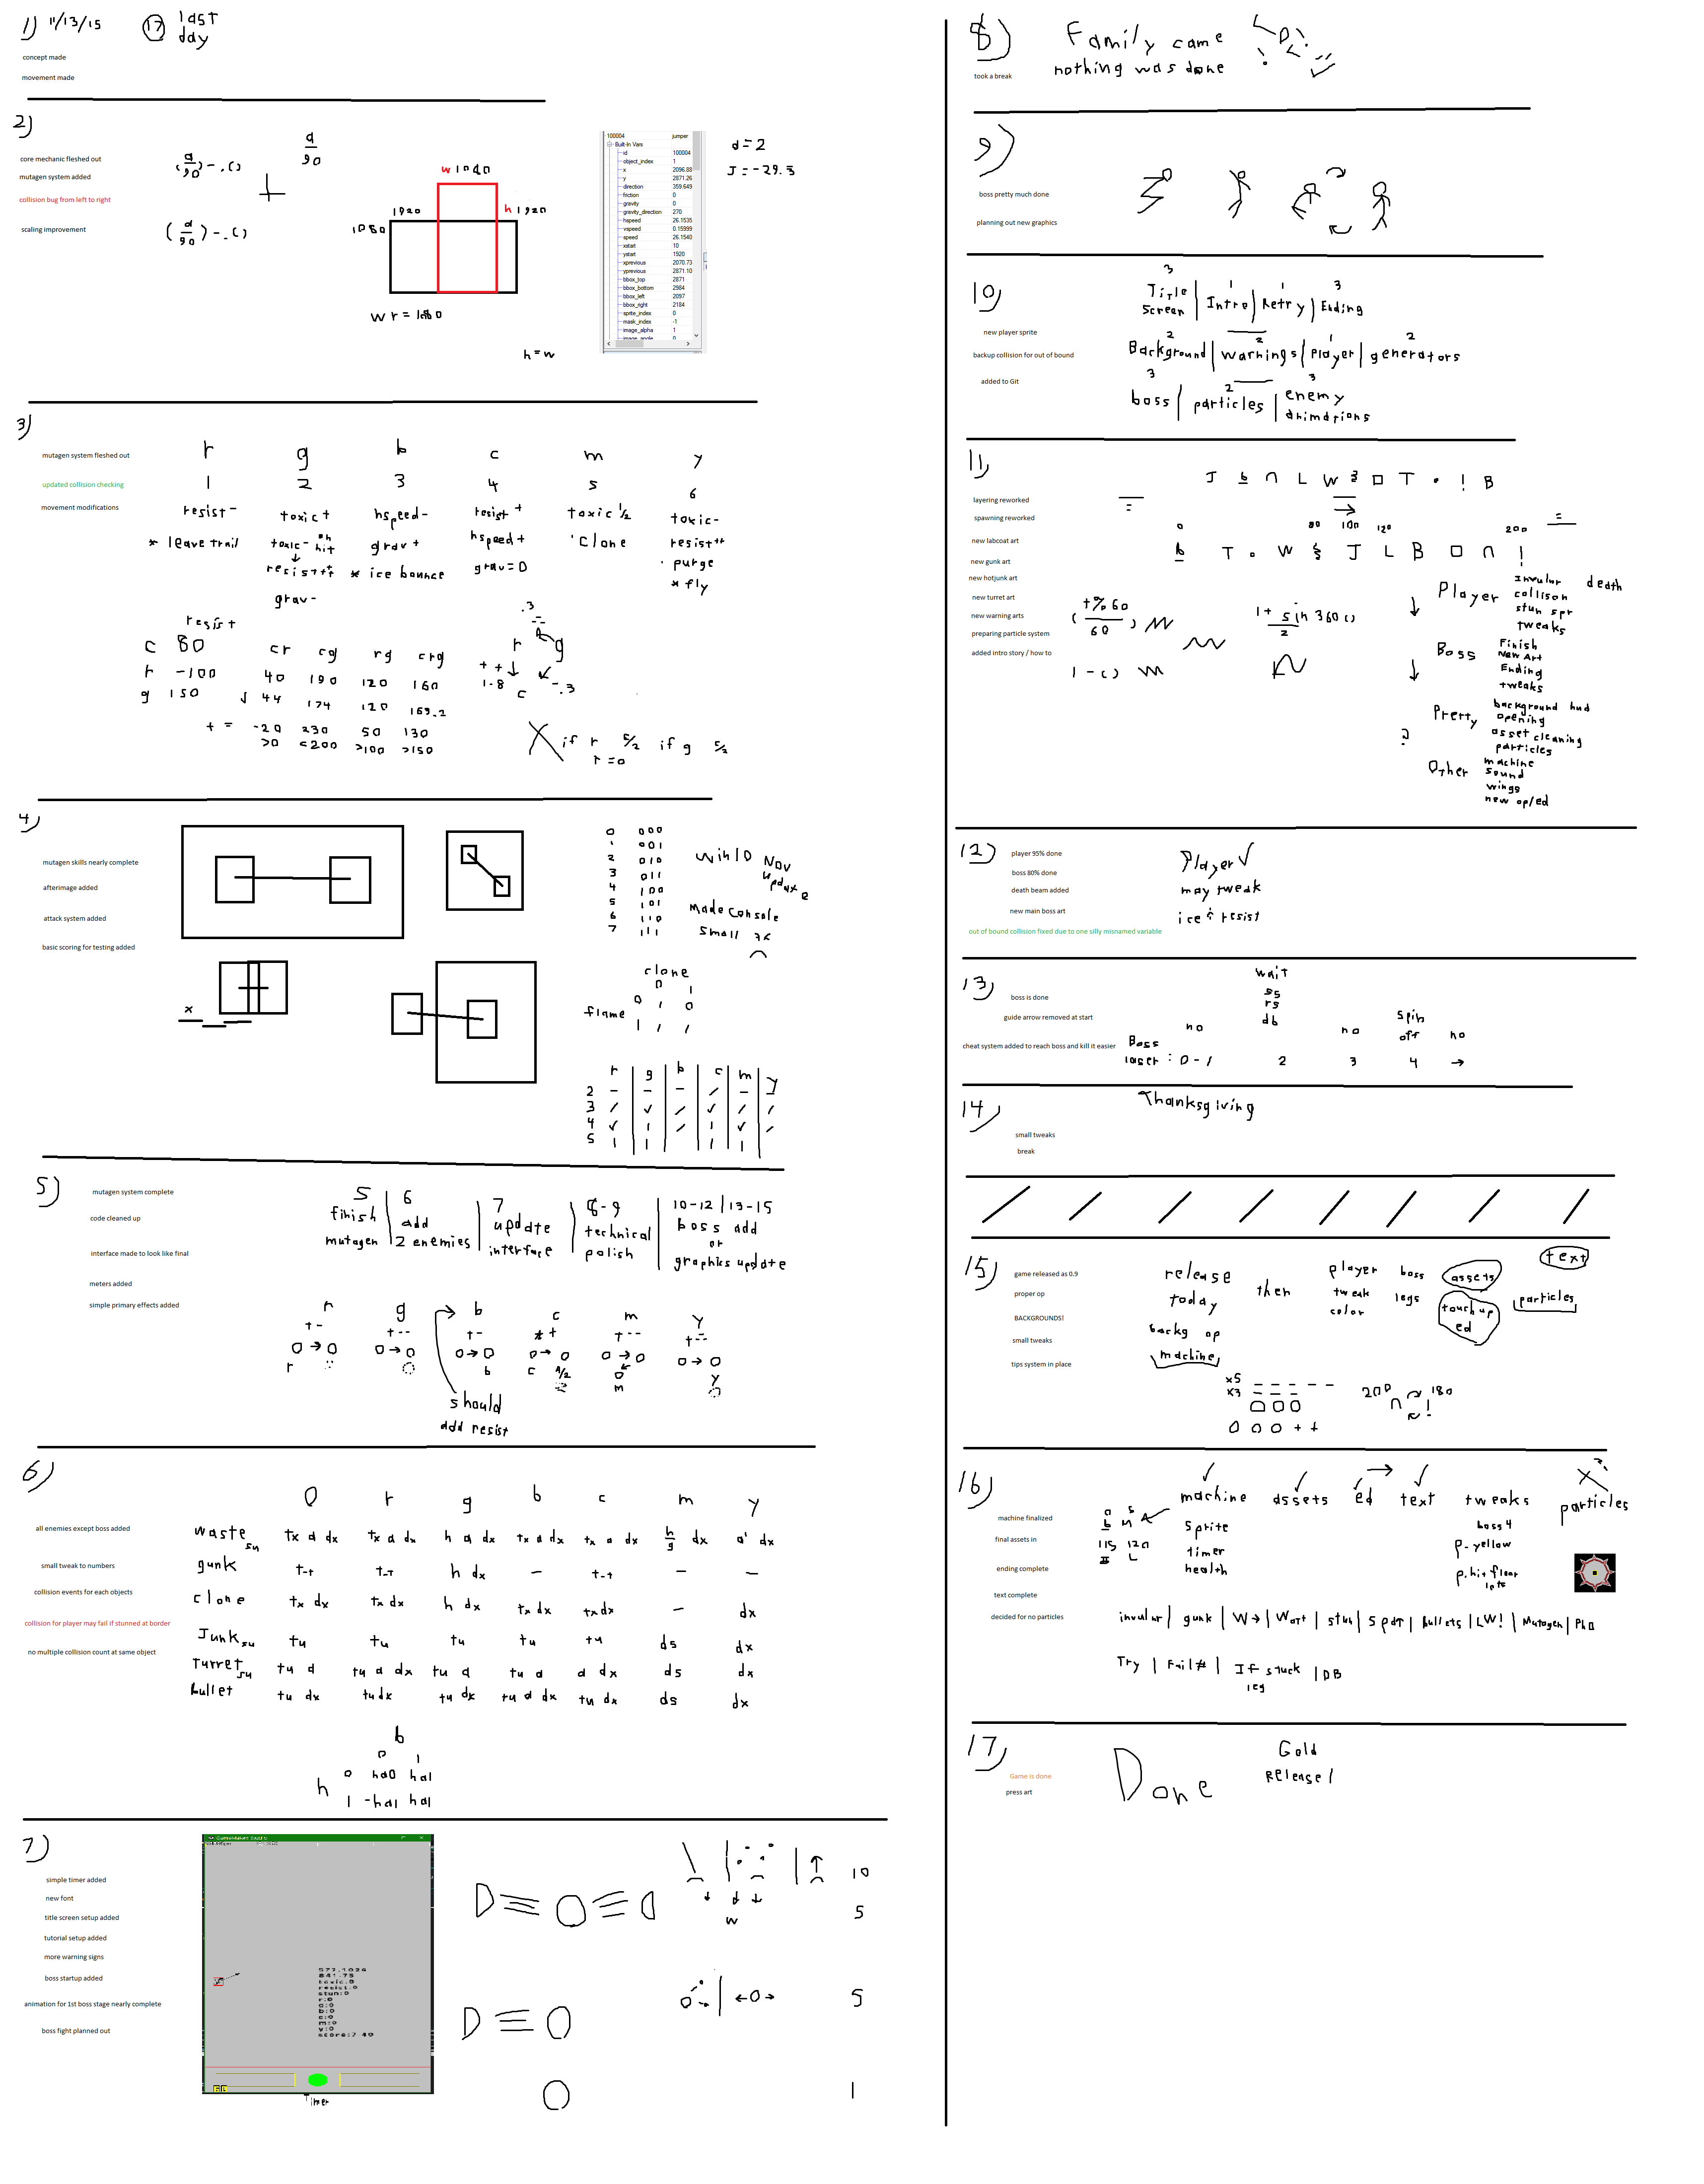 1) 11/13/15 17 last
day
concept made
movement made
2)
core mechanic fleshed out
mutagen system added
collision bug from left to right
scaling improvement
d
90
(d/90) - . ()
(d/90) - . ()
w 1080
1920 h 1920
1080
wr =
h = w
100004 jumper
Built-In Vars
id 100004
object_index 1
x 2096.88
y 2871.26
direction 359.649
friction 0
gravity 0
gravity_direction 270
hspeed 26.1535
vspeed 0.15999
speed 26.1540
xstart 10
ystart 1920
xprevious 2070.73
yprevious 2871.10
bbox_top 2871
bbox_bottom 2984
bbox_left 2097
bbox_right 2184
sprite_index 0
mask_index -1
image_alpha 1
image_angle 0
d = 2
J = -29.3
3)
mutagen system fleshed out
updated collision checking
movement modifications
r g b c m y
1 2 3 4 5 6
resist - toxic + hspeed - resist + toxic 1/2 toxic -
* leave trail toxic - on hit grav + hspeed + clone resist ++
resist +++ * ice bounce grav = 0 purge
grav - * fly
resist
c 80 cr cg rg crg
r -100 40 190 120 160
g 150 44 174 120 169.2
+ = -20 230 50 130
>0 <200 >100 >150
.3
r g
++
1.8 c -.3
X if r 5/2 if g 5/2
r = 0
4)
mutagen skills nearly complete
afterimage added
attack system added
basic scoring for testing added
x
0 000
1 001
2 010
3 011
4 100
5 101
6 110
7 111
win10 Nov
update
made console
small
clone
0 1
flame 0 1 0
1 1 1
r g b c m y
2
3
4
5
5)
mutagen system complete
code cleaned up
interface made to look like final
meters added
simple primary effects added
5 | 6 | 7 | 8-9 | 10-12 | 13-15
finish add update technical boss add
mutagen 2 enemies interface polish or
graphics update
r g b c m y
should
add resist
6)
all enemies except boss added
small tweak to numbers
collision events for each objects
collision for player may fail if stunned at border
no multiple collision count at same object
0 r g b c m y
waste su tx a dx tx a dx h a dx tx a dx tx a dx h/g dx a' dx
gunk t-t t-t h dx - t-t - -
clone tx dx tx dx h dx tx dx tx dx - dx
Junk su tu tu tu tu tu ds dx
Turret su tu d tu d dx tu d tu d d dx ds dx
bullet tu dx tu dx tu dx tu d dx tu dx ds dx
b
0 1
h 0 ha0 ha1
1 -ha1 ha1
7)
simple timer added
new font
title screen setup added
tutorial setup added
more warning signs
boss startup added
animation for 1st boss stage nearly complete
boss fight planned out
577,1026
841.75
toxic:0
resist:0
stun:0
r:0
g:0
b:0
c:0
m:0
y:0
score:7 40
Timer
10
w 5
5
1
8) Family came
nothing was done
took a break
9)
boss pretty much done
planning out new graphics
10)
new player sprite
backup collision for out of bound
added to Git
3 1 1 3
Title Screen | Intro | Retry | Ending
2 2 1 2
Background | warnings | player | generators
3 2 3
boss | particles | enemy
animations
11)
layering reworked
spawning reworked
new labcoat art
new gunk art
new hotjunk art
new turret art
new warning arts
preparing particle system
added intro story / how to
J b n L W § □ T • ! B
0 80 100 120 200
b T • W § J L B □ n !
(t%60 / 60)
1 + sin 360 () / 2
1 - ()
Player invulnr death
collison
stun spr
tweaks
Boss Finish
New Art
Ending
tweaks
Pretty background hud
opening
asset cleaning
particles
?
Other machine
sound
wings
new op/ed
12)
player 95% done
boss 80% done
death beam added
new main boss art
out of bound collision fixed due to one silly misnamed variable
Player ✓
may tweak
ice & resist
13)
boss is done
guide arrow removed at start
cheat system added to reach boss and kill it easier
wait
ss
rs
no db no spin off no
Boss
laser : 0-1 2 3 4 →
14) Thanksgiving
small tweaks
break
15)
game released as 0.9
proper op
BACKGROUNDS!
small tweaks
tips system in place
release
today then
backg op
machine
player boss assets text
tweak legs touch up particles
color ed
x5
x3
200 n ! 180
16)
machine finalized
final assets in
ending complete
text complete
decided for no particles
115 120
machine assets ed → text tweaks particles
sprite boss 4
timer p-yellow
health p.hit floor
invulnr | gunk | W→ | Wart | stun | spdt | bullets | LW! | Mutagen |
Try | Fail# | If stuck | DB
leg
17)
Game is done
press art
Done
Gold
Release!